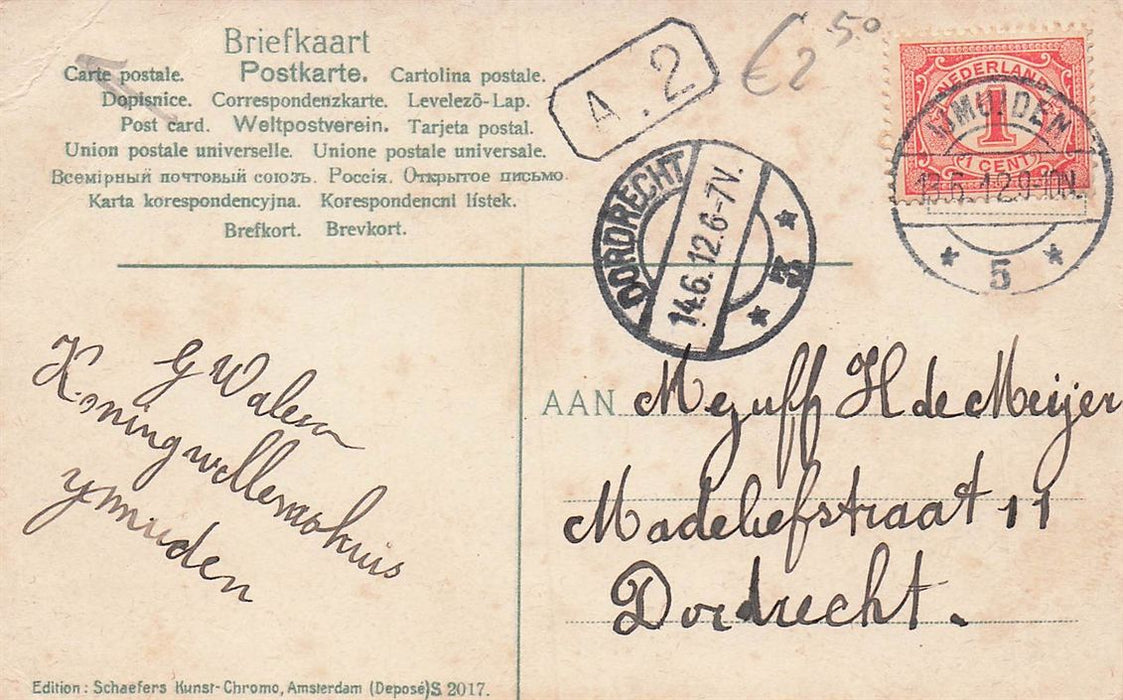 Briefkaart
Carte postale. Postkarte. Cartolina postale.
Dopisnice. Correspondenzkarte. Levelező-Lap.
Post card. Weltpostverein. Tarjeta postal.
Union postale universelle. Unione postale universale.
Всемірный почтовый союзъ. Россія. Открытое письмо.
Karta korespondencyjna. Korespondencni lístek.
Brefkort. Brevkort.
A.2
€2 50
NEDERLAND
1
1 CENT
IJMUIDEN
13.6.12.9-10N.
5
DORDRECHT
14.6.12.6-7V.
3
G Walesa
Koning
ymuiden
AAN Mejuff H de Meijer
Madeliefstraat 11
Dordrecht.
Edition: Schaefers Kunst-Chromo, Amsterdam (Deposé) S. 2017.